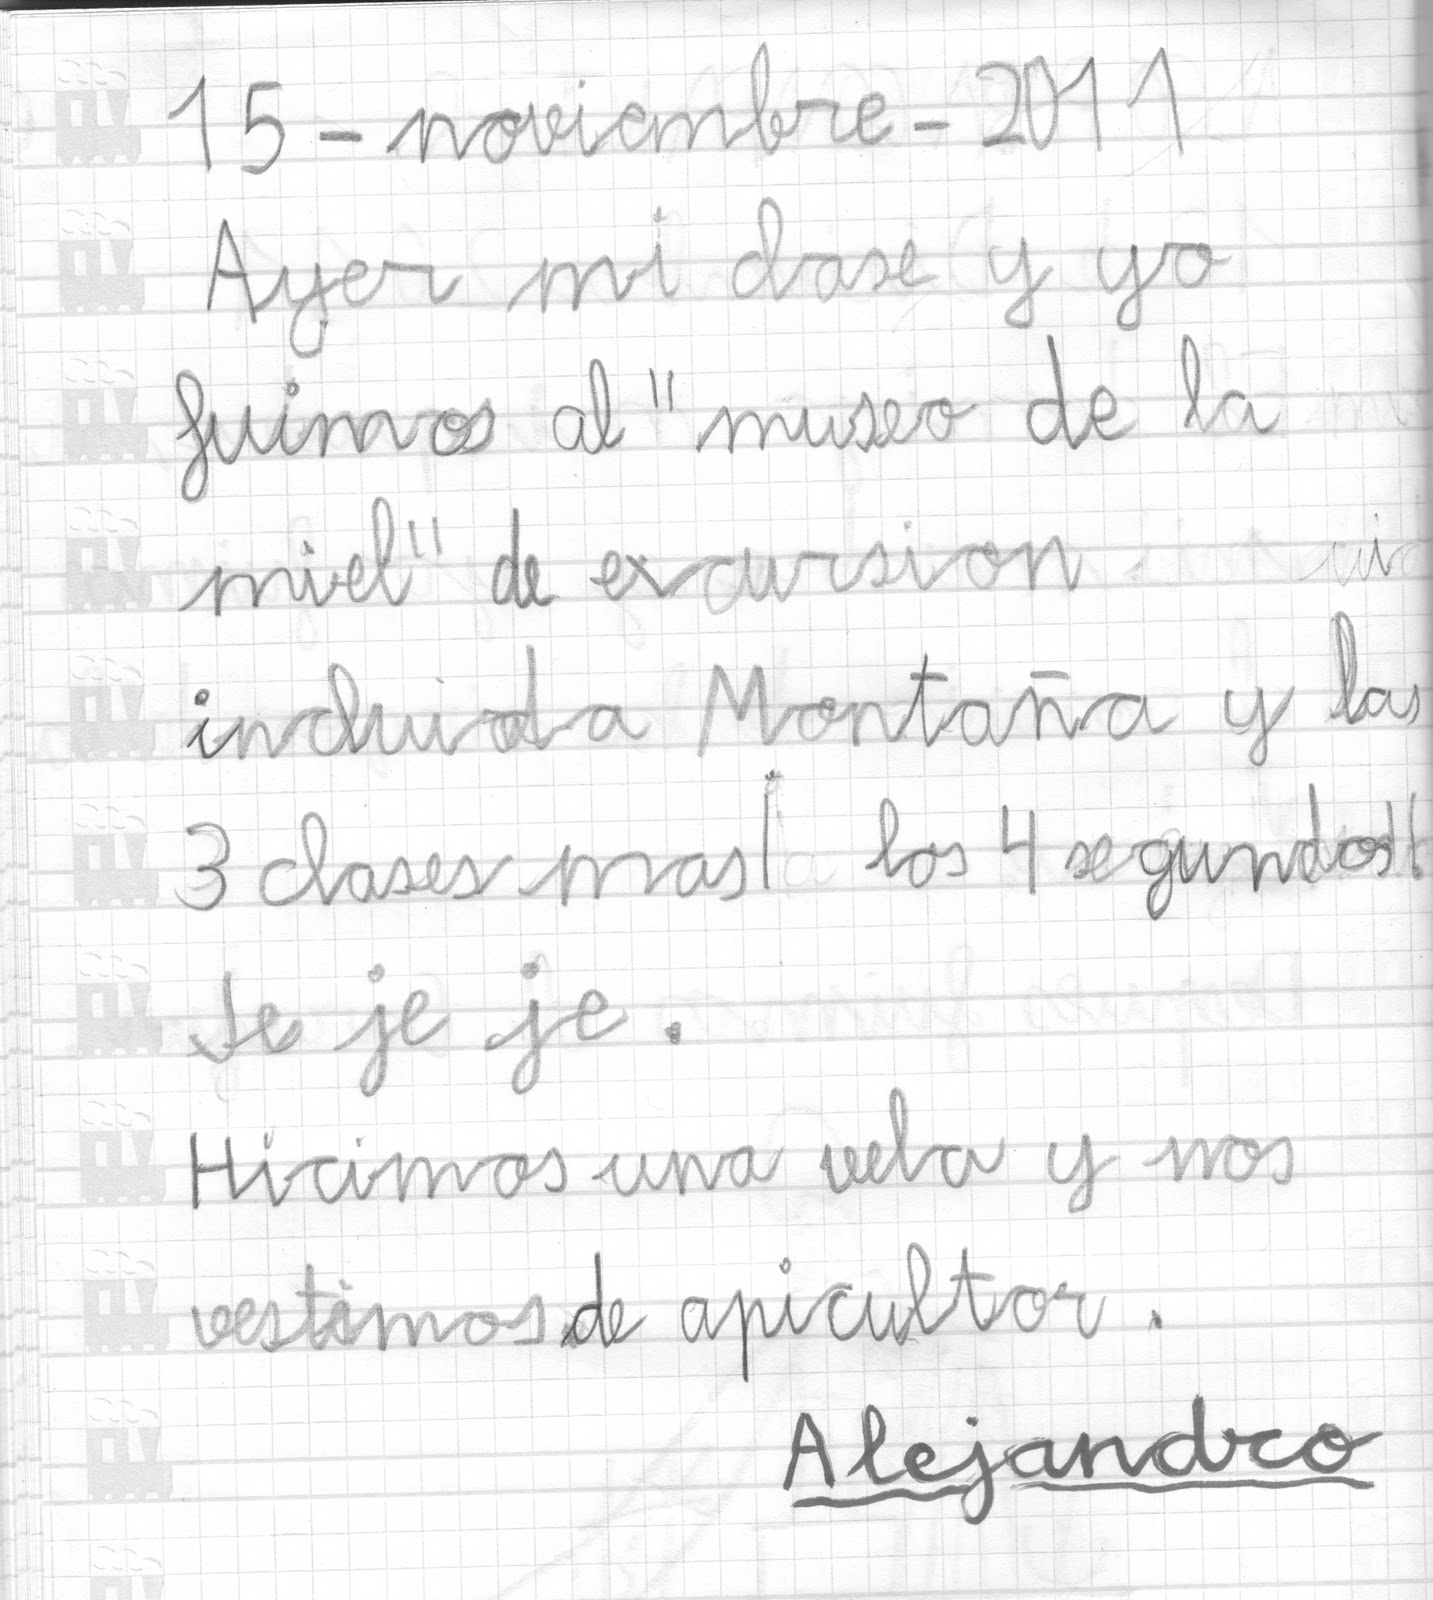 15-noviembre-2011
Ayer mi clase y yo
fuimos al "museo de la
miel" de excursion
incluida Montaña y las
3 clases mas ¡los 4 segundos!!
Je je je.
Hicimos una vela y nos
vestimos de apicultor.
Alejandro